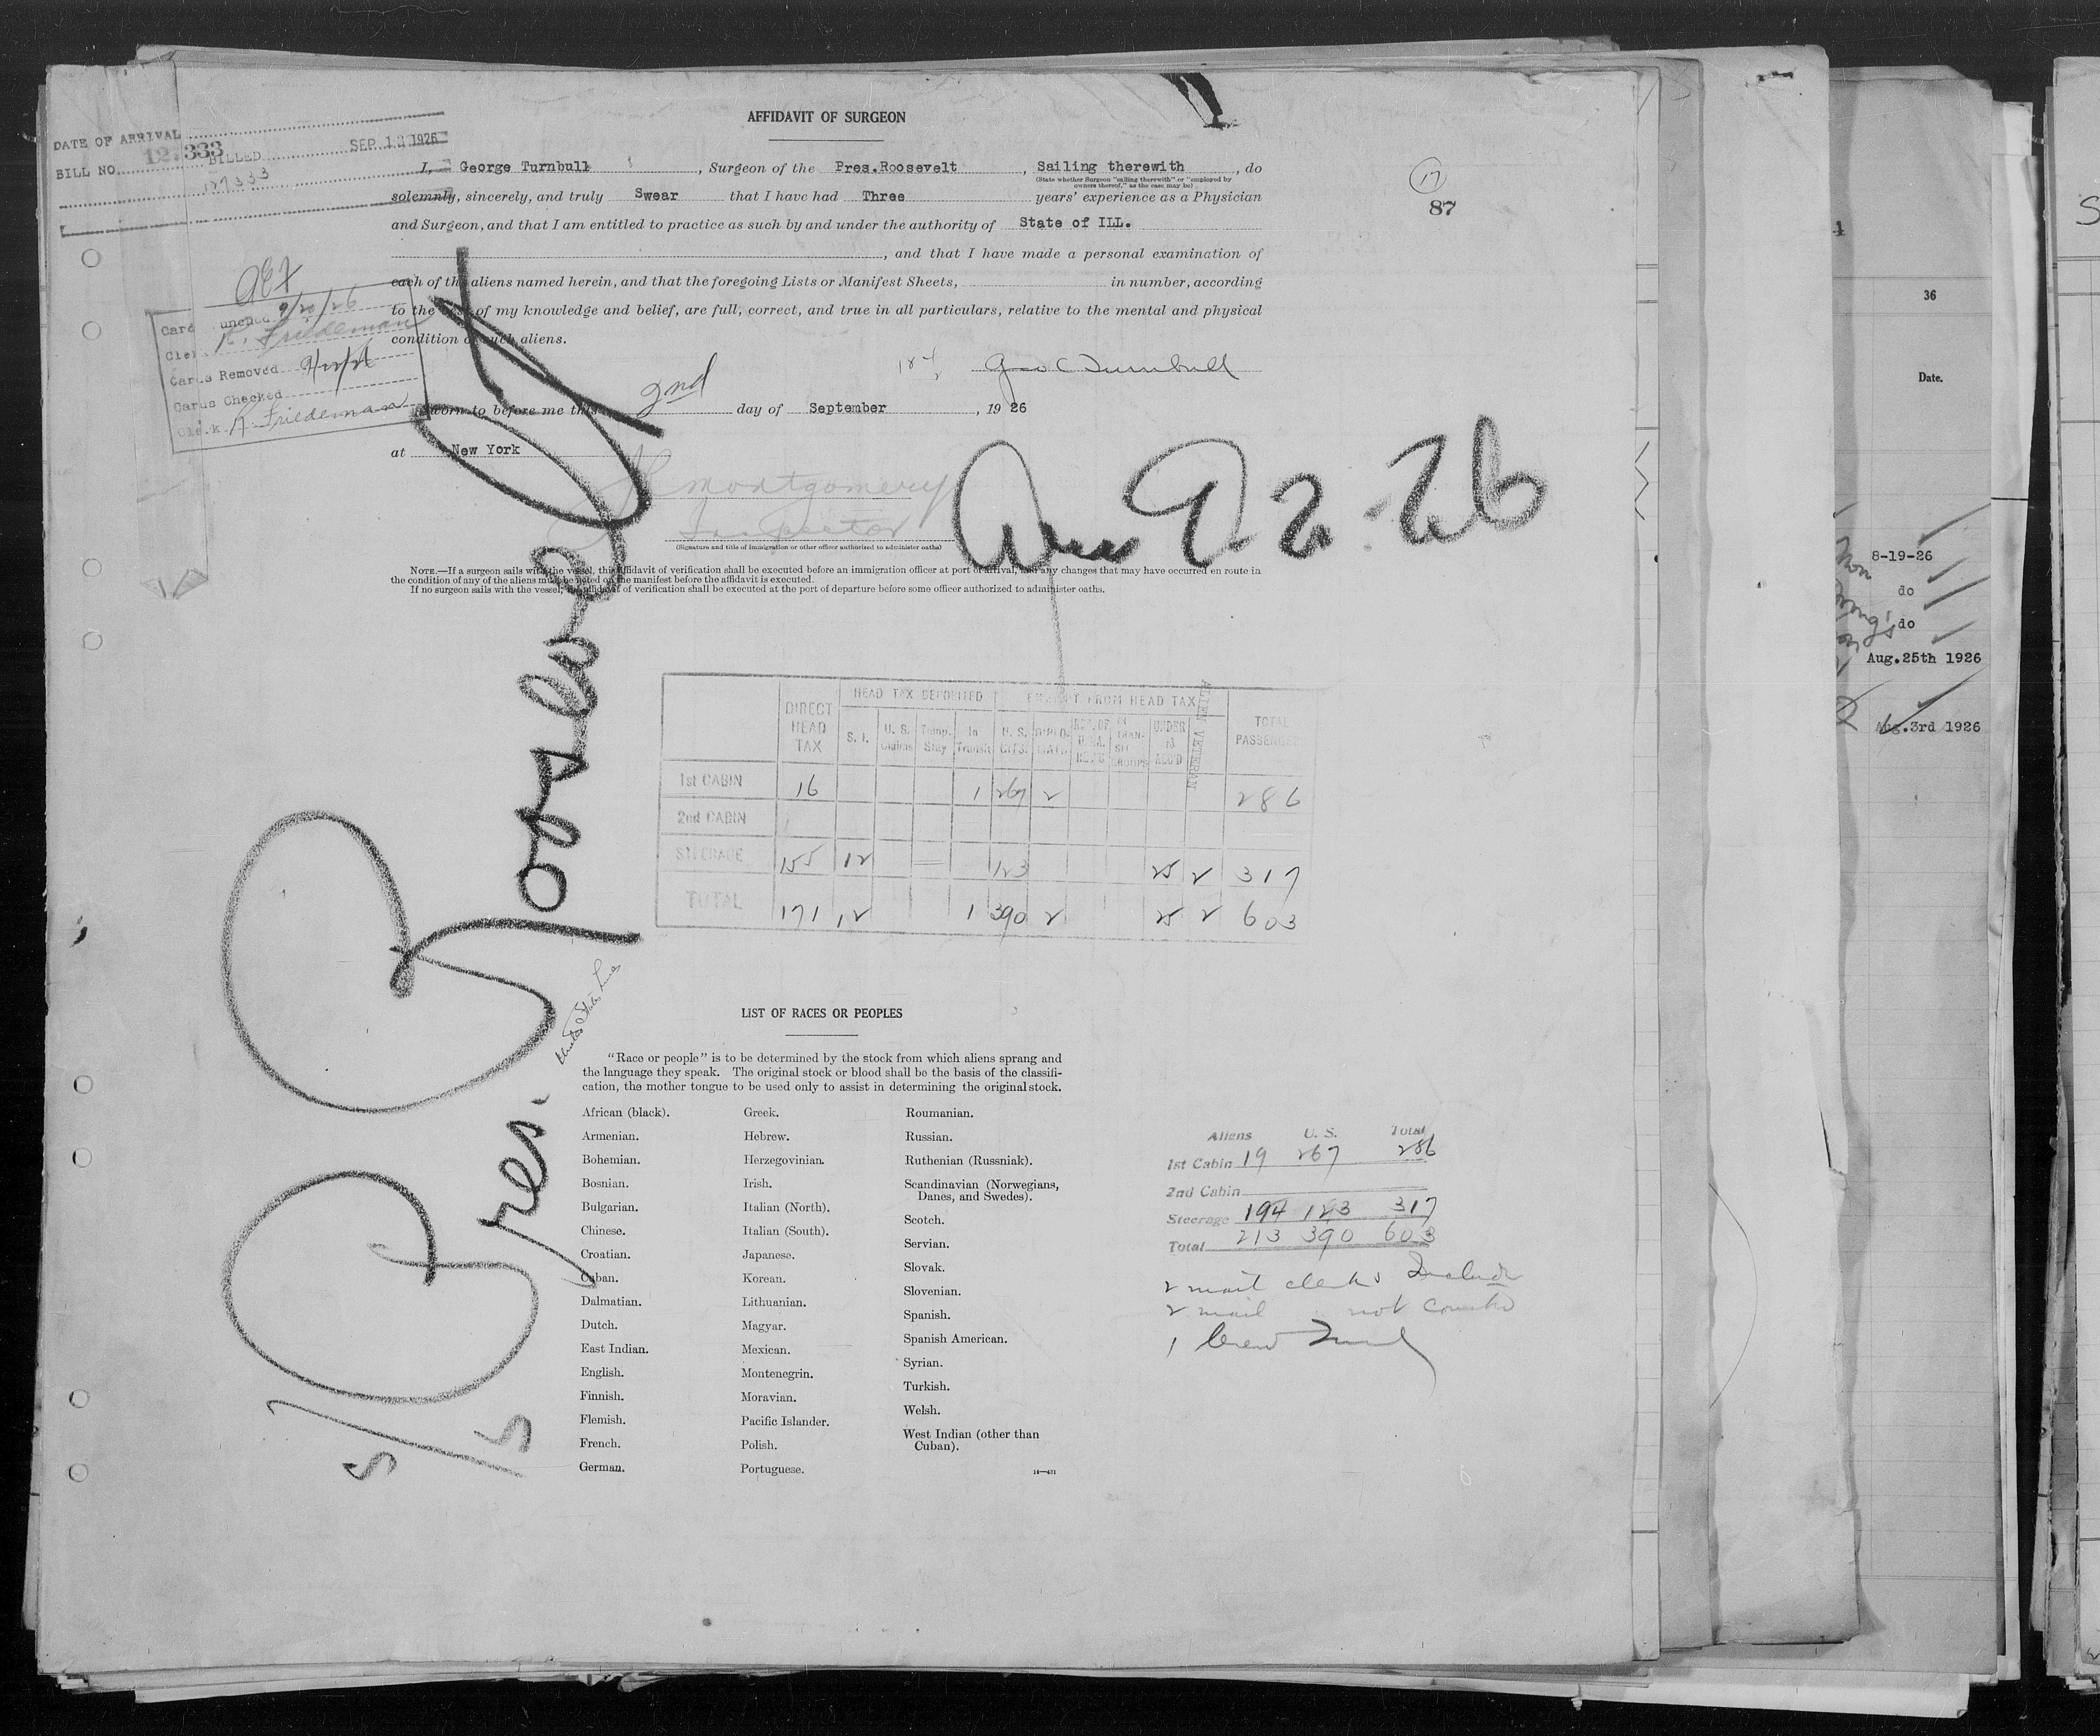 AFFIDAVIT OF SURGEON
DATE OF ARRIVAL
BILL NO. 12.333 BILLED SEP 13 1926
127333
I, George Turnbull, Surgeon of the Pres.Roosevelt, Sailing therewith, do
(State whether Surgeon "sailing therewith" or "employed by
owners thereof," as the case may be)
solemnly, sincerely, and truly Swear that I have had Three years' experience as a Physician
and Surgeon, and that I am entitled to practice as such by and under the authority of State of ILL.
, and that I have made a personal examination of
each of the aliens named herein, and that the foregoing Lists or Manifest Sheets, in number, according
to the best of my knowledge and belief, are full, correct, and true in all particulars, relative to the mental and physical
condition of such aliens.
17
87
Card unched 9/20/26
Clerk R. Friedeman
Cards Removed
Cards Checked
Clerk R. Friedeman
Geo C Turnbull
Sworn to before me this 2nd day of September, 1926
at New York
Montgomery
Inspector
(Signature and title of immigration or other officer authorized to administer oaths)
Arr 9.2.26
NOTE.—If a surgeon sails with the vessel, this affidavit of verification shall be executed before an immigration officer at port of arrival, and any changes that may have occurred en route in
the condition of any of the aliens must be noted on the manifest before the affidavit is executed.
If no surgeon sails with the vessel, the affidavit of verification shall be executed at the port of departure before some officer authorized to administer oaths.
S/S Pres. Roosevelt
United States Lines
DIRECT HEAD TAX
HEAD TAX DEPOSITED
EXEMPT FROM HEAD TAX
ALIEN VETERAN
TOTAL PASSENGER
S. I. U. S. Claims Temp. Stay In Transit U. S. CITS. DIPLO- IN TRAN- SIT GROUPS UNDER 16 ACC'D
1st CABIN 16 1 267 2 286
2nd CABIN
STEERAGE 155 12 — 123 25 2 317
TOTAL 171 12 1 390 2 25 2 603
LIST OF RACES OR PEOPLES
"Race or people" is to be determined by the stock from which aliens sprang and
the language they speak. The original stock or blood shall be the basis of the classifi-
cation, the mother tongue to be used only to assist in determining the original stock.
African (black).
Armenian.
Bohemian.
Bosnian.
Bulgarian.
Chinese.
Croatian.
Cuban.
Dalmatian.
Dutch.
East Indian.
English.
Finnish.
Flemish.
French.
German.
Greek.
Hebrew.
Herzegovinian.
Irish.
Italian (North).
Italian (South).
Japanese.
Korean.
Lithuanian.
Magyar.
Mexican.
Montenegrin.
Moravian.
Pacific Islander.
Polish.
Portuguese.
Roumanian.
Russian.
Ruthenian (Russniak).
Scandinavian (Norwegians,
Danes, and Swedes).
Scotch.
Servian.
Slovak.
Slovenian.
Spanish.
Spanish American.
Syrian.
Turkish.
Welsh.
West Indian (other than
Cuban).
14—431
Aliens U. S. Total
1st Cabin 19 267 286
2nd Cabin
Steerage 194 123 317
Total 213 390 603
2 mail clerks Include
2 mail " not counted
1 Crew
36
Date.
8-19-26
do
do
Aug.25th 1926
Aug.3rd 1926